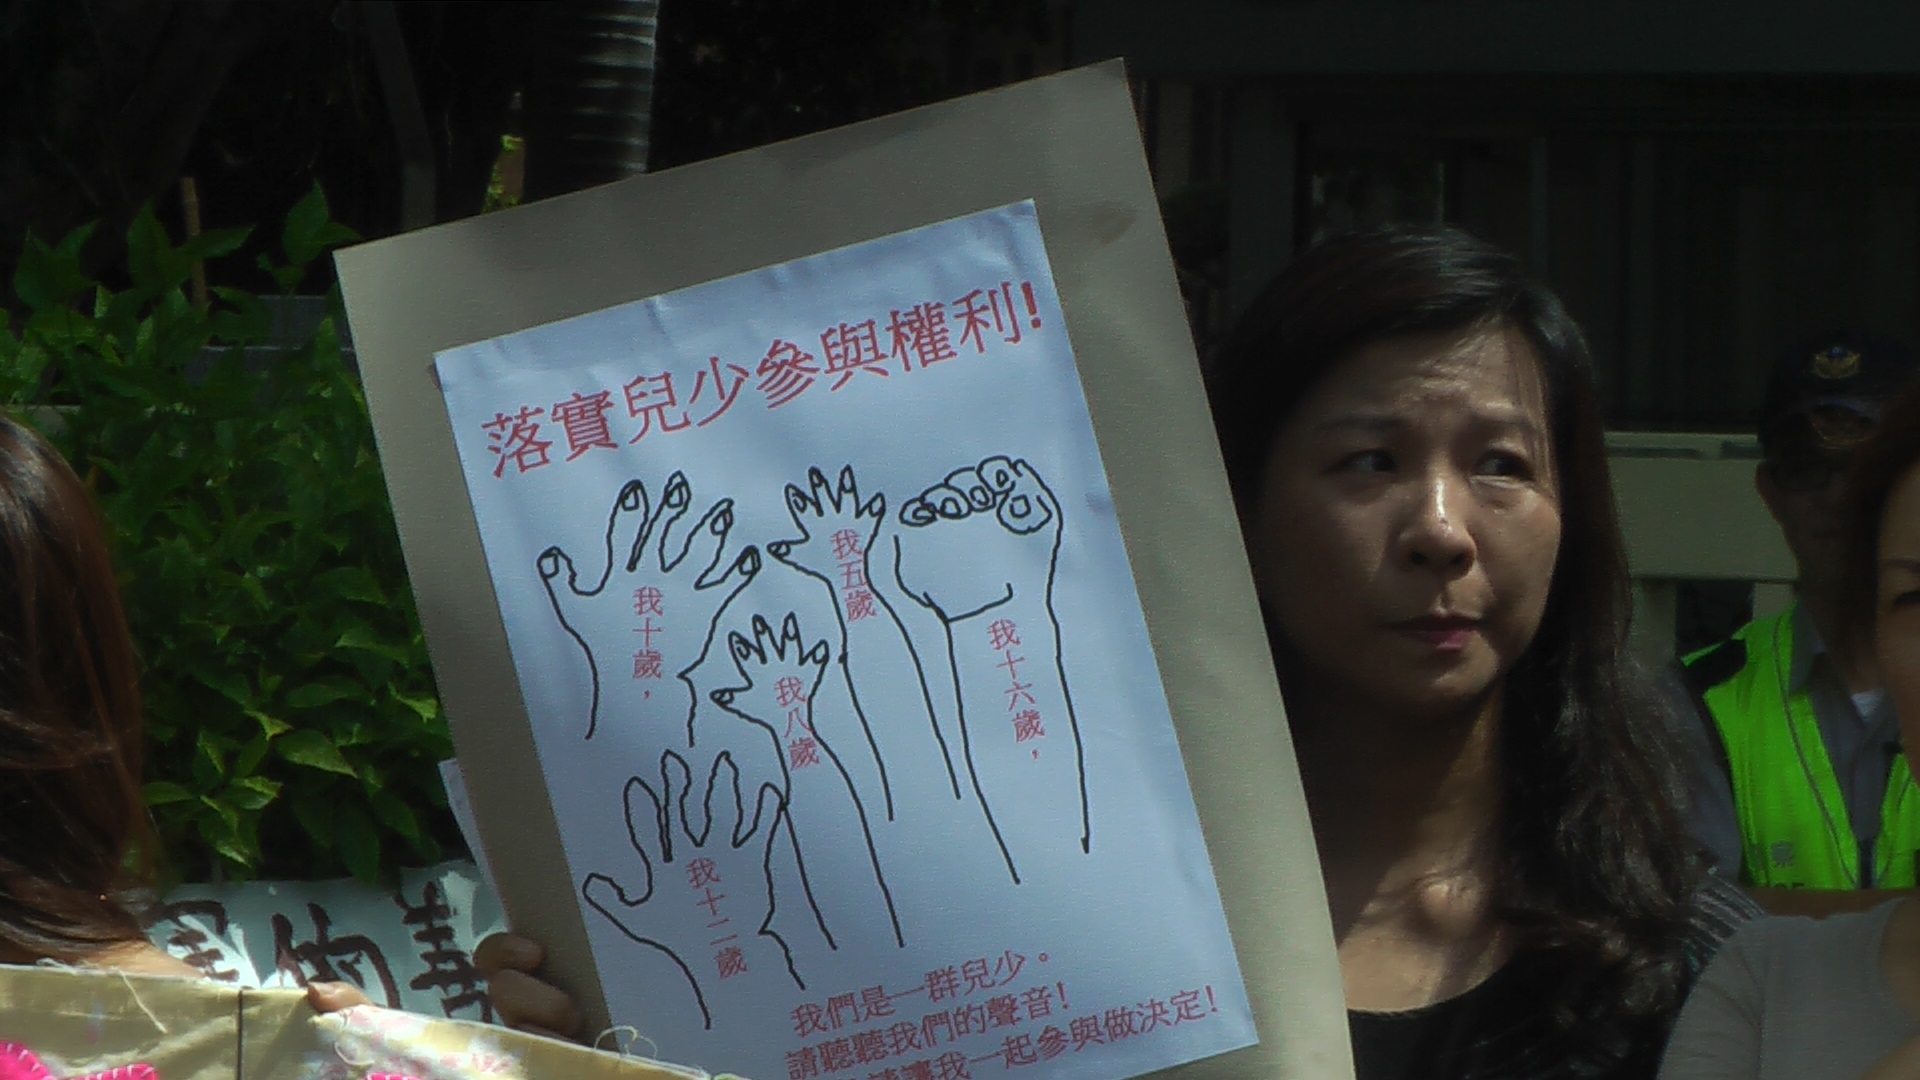 落實兒少參與權利!
我十歲，
我五歲
我十六歲，
我八歲
我十二歲
我們是一群兒少。
請聽聽我們的聲音!
請讓我一起參與做決定!
的